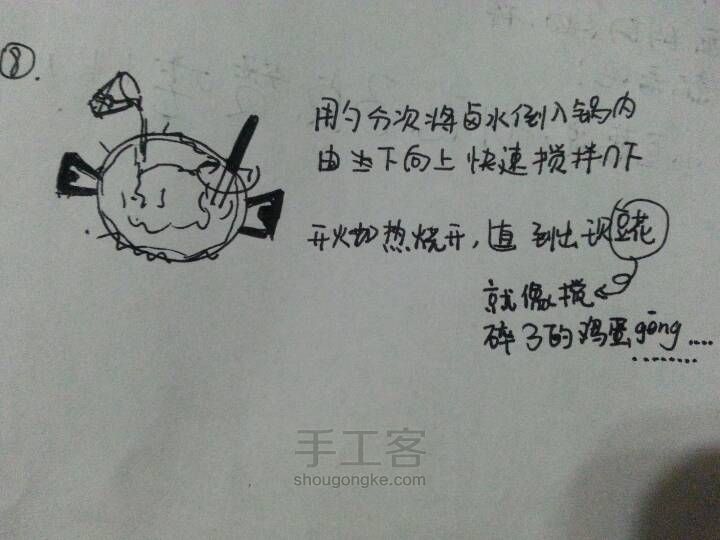 ⑧.
用勺分次将卤水倒入锅内
由当下向上快速搅拌几下
开火加热烧开,直到出现豆花
就像搅
碎了的鸡蛋gōng……
手工客
shougongke.com